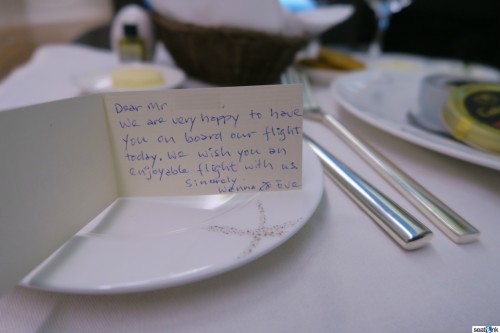 Dear Mr
We are very happy to have
you on board our flight
today. We wish you an
enjoyable flight with us.
Sincerely